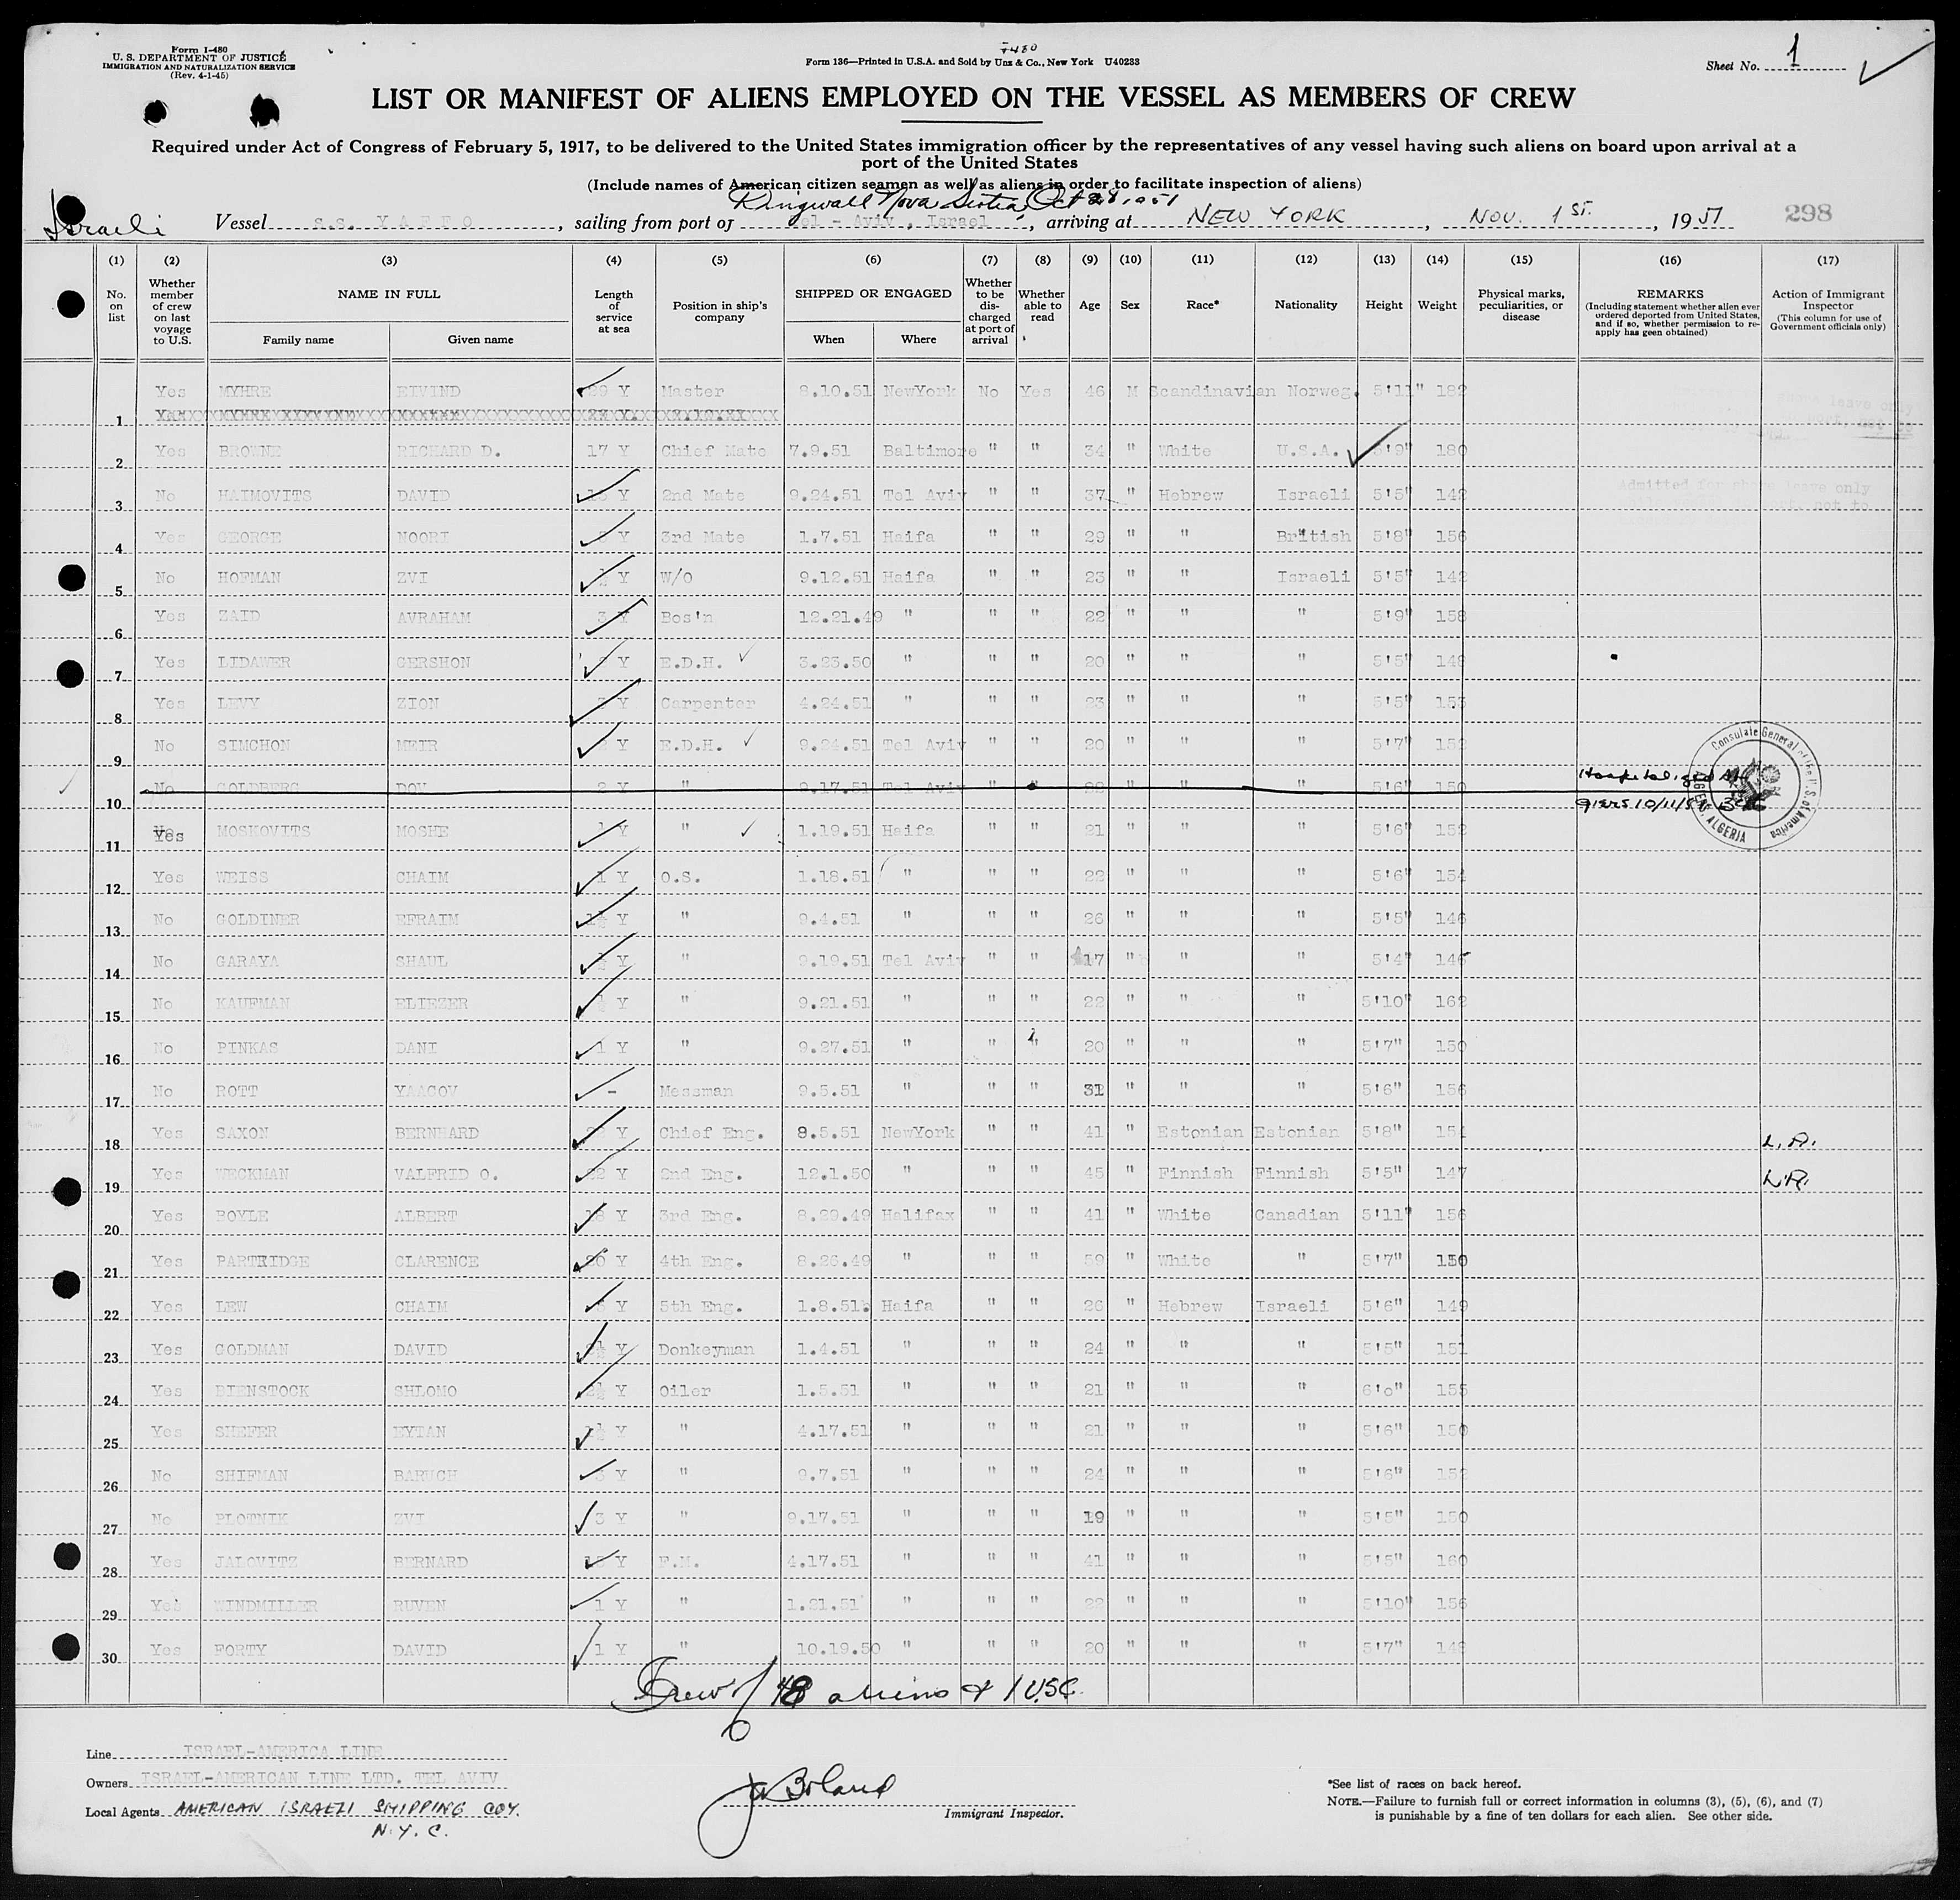 Form I-480
U. S. DEPARTMENT OF JUSTICE
IMMIGRATION AND NATURALIZATION SERVICE
(Rev. 4-1-45)
Form 136—Printed in U.S.A. and Sold by Unz & Co., New York U40233
Sheet No. 1
LIST OR MANIFEST OF ALIENS EMPLOYED ON THE VESSEL AS MEMBERS OF CREW
Required under Act of Congress of February 5, 1917, to be delivered to the United States immigration officer by the representatives of any vessel having such aliens on board upon arrival at a
port of the United States
(Include names of American citizen seamen as well as aliens in order to facilitate inspection of aliens)
Nova Scotia Oct
Israeli Vessel s.s. YAFFO, sailing from port of Tel - Aviv, Israel, arriving at NEW YORK, NOV. 1ST., 1951 298
(1) (2) (3) (4) (5) (6) (7) (8) (9) (10) (11) (12) (13) (14) (15) (16) (17)
No. on list
Whether member of crew on last voyage to U.S.
NAME IN FULL
Family name Given name
Length of service at sea
Position in ship's company
SHIPPED OR ENGAGED
When Where
Whether to be discharged at port of arrival
Whether able to read
Age
Sex
Race*
Nationality
Height
Weight
Physical marks, peculiarities, or disease
REMARKS
(Including statement whether alien ever ordered deported from United States, and if so, whether permission to re-apply has geen obtained)
Action of Immigrant Inspector
(This column for use of Government officials only)
1 Yes MYHRE EIVIND 29 Y Master 8.10.51 NewYork No Yes 46 M Scandinavian Norweg. 5'11" 182
2 Yes BROWNE RICHARD D. 17 Y Chief Mate 7.9.51 Baltimore " " 34 " White U.S.A. 5'9" 180
3 No HAIMOVITS DAVID Y 2nd Mate 9.24.51 Tel Aviv " " 37 " Hebrew Israeli 5'5" 142 Admitted for shore leave only
4 Yes GEORGE NOORI Y 3rd Mate 1.7.51 Haifa " " 29 " " British 5'8" 156
5 No HOFMAN ZVI ½ Y W/O 9.12.51 Haifa " " 23 " " Israeli 5'5" 142
6 Yes ZAID AVRAHAM 3 Y Bos'n 12.21.49 " " " 22 " " " 5'9" 158
7 Yes LIDAWER GERSHON Y E.D.H. 3.23.50 " " " 20 " " " 5'5" 148
8 Yes LEVY ZION Y Carpenter 4.24.51 " " " 23 " " " 5'5" 153
9 No SIMCHON MEIR Y E.D.H. 9.24.51 Tel Aviv " " 20 " " " 5'7" 152
10 No GOLDBERG DOV 2 Y " 9.17.51 Tel Aviv " " 5'6" 150 Hospitalized
Consulate General of the U.S. of America ALGERIA
11 Yes MOSKOVITS MOSHE Y " 1.19.51 Haifa " " 21 " " " 5'6" 152
12 Yes WEISS CHAIM 1 Y O.S. 1.18.51 " " " 22 " " " 5'6" 154
13 No GOLDINER EFRAIM 1½ Y " 9.4.51 " " " 26 " " " 5'5" 146
14 No GARAYA SHAUL ½ Y " 9.19.51 Tel Aviv " " 17 " " " 5'4" 145
15 No KAUFMAN ELIEZER ½ Y " 9.21.51 " " " 22 " " " 5'10" 162
16 No PINKAS DANI 1 Y " 9.27.51 " " " 20 " " " 5'7" 150
17 No ROTT YAACOV - Messman 9.5.51 " " " 31 " " " 5'6" 156
18 Yes SAXON BERNHARD Y Chief Eng. 8.5.51 NewYork " " 41 " Estonian Estonian 5'8" 154 L.R.
19 Yes WECKMAN VALFRID O. 22 Y 2nd Eng. 12.1.50 " " " 45 " Finnish Finnish 5'5" 147 L.R.
20 Yes BOYLE ALBERT 18 Y 3rd Eng. 8.29.49 Halifax " " 41 " White Canadian 5'11" 156
21 Yes PARTRIDGE CLARENCE 20 Y 4th Eng. 8.26.49 " " " 59 " White " 5'7" 150
22 Yes LEW CHAIM Y 5th Eng. 1.8.51 Haifa " " 26 " Hebrew Israeli 5'6" 149
23 Yes GOLDMAN DAVID Y Donkeyman 1.4.51 " " " 24 " " " 5'5" 151
24 Yes BIENSTOCK SHLOMO Y Oiler 1.5.51 " " " 21 " " " 6'0" 155
25 Yes SHEFER EYTAN Y " 4.17.51 " " " 21 " " " 5'6" 150
26 No SHIFMAN BARUCH Y " 9.7.51 " " " 24 " " " 5'6" 152
27 No PLOTNIK ZVI 3 Y " 9.17.51 " " " 19 " " " 5'5" 150
28 Yes JALOVITZ BERNARD Y F.M. 4.17.51 " " " 41 " " " 5'5" 160
29 Yes WINDMILLER RUVEN 1 Y " 1.21.51 " " " 22 " " " 5'10" 156
30 Yes FORTY DAVID 1 Y " 10.19.50 " " " 20 " " " 5'7" 148
Crew of 48 aliens & 1 USC.
Line ISRAEL-AMERICA LINE
Owners ISRAEL-AMERICAN LINE LTD. TEL AVIV
Local Agents AMERICAN ISRAELI SHIPPING COY.
N.Y.C.
Boland
Immigrant Inspector.
*See list of races on back hereof.
NOTE.—Failure to furnish full or correct information in columns (3), (5), (6), and (7)
is punishable by a fine of ten dollars for each alien. See other side.